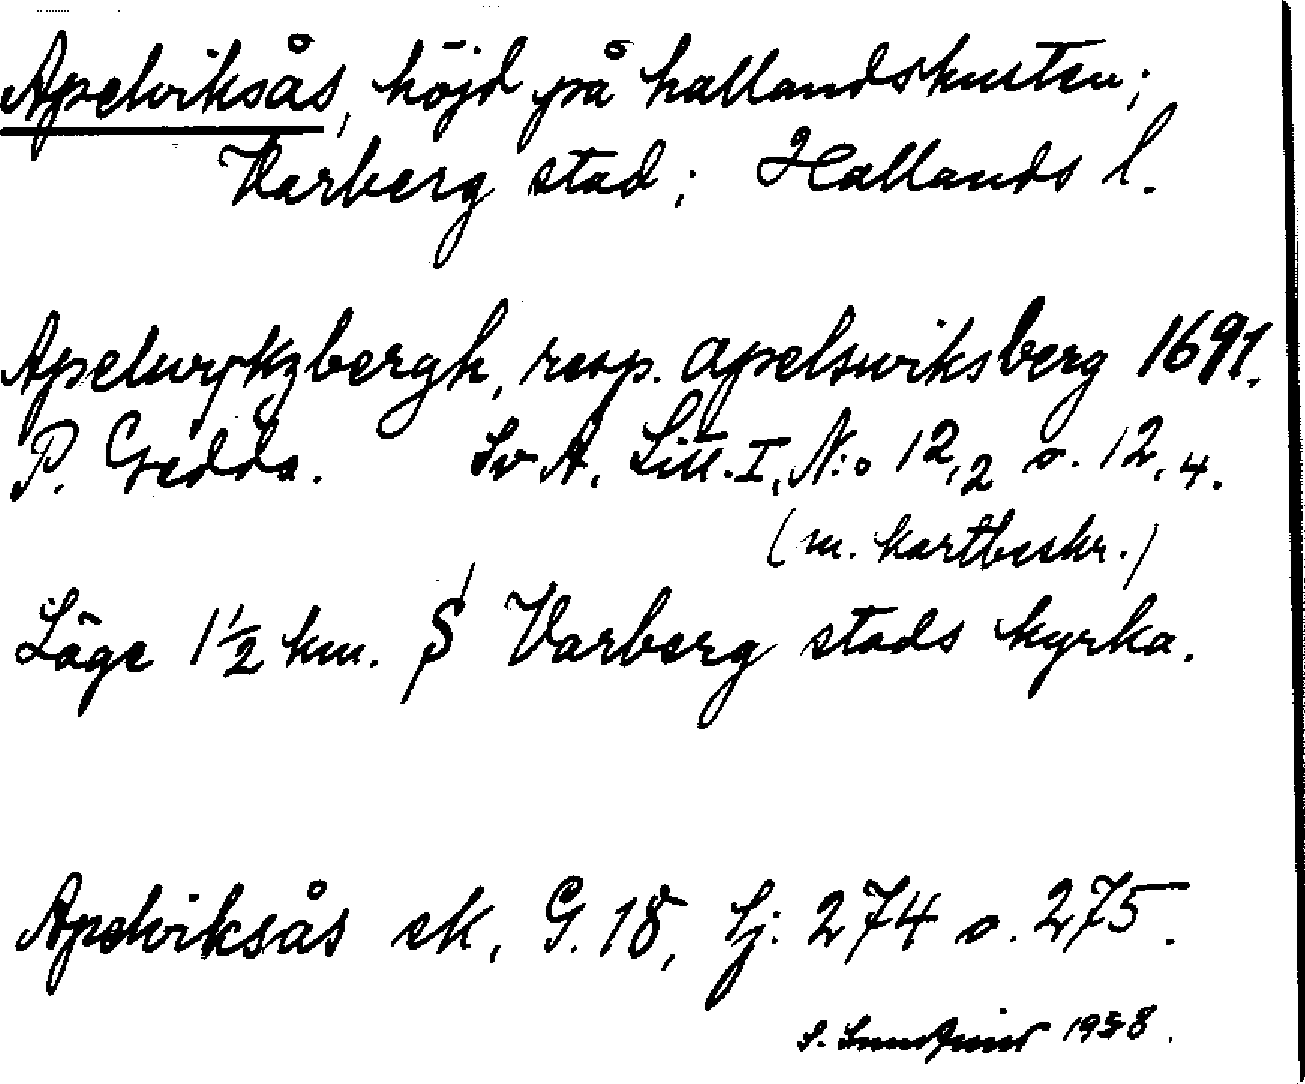 Apelviksås, höjd på hallandskusten;
Varberg stad; Hallands l.
Apelwÿkzbergh, resp. Apelswiksberg 1691.
P. Gedda. SvA. Litt. I, N:o 12,2 o. 12,4.
(m. kartbeskr.)
Läge 1½ km. S Varberg stads kyrka.
Apelviksås ek. G. 18, Sj: 274 o. 275.
S. 1958.